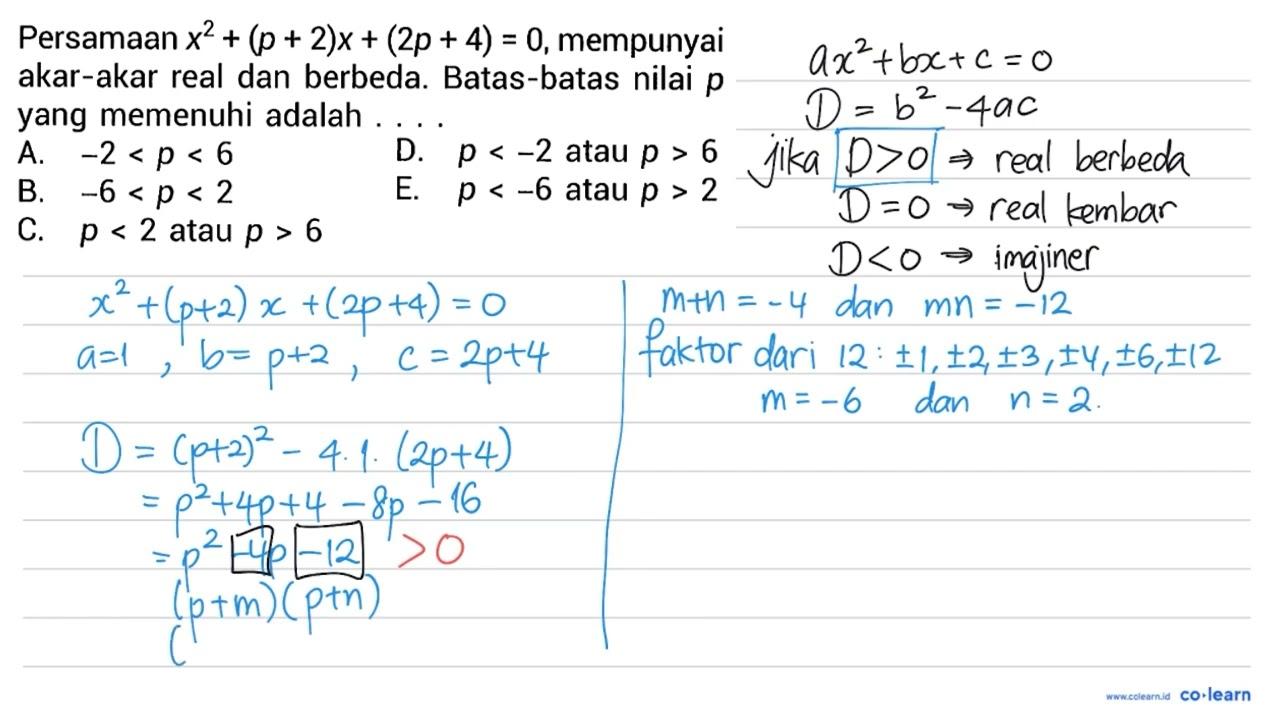 Persamaan x² + (p + 2)x + (2p + 4) = 0, mempunyai
akar-akar real dan berbeda. Batas-batas nilai p
yang memenuhi adalah . . . .
A. −2 < p < 6
B. −6 < p < 2
C. p < 2 atau p > 6
D. p < −2 atau p > 6
E. p < −6 atau p > 2
ax²+bx+c=0
D = b² -4ac
jika D>0 ⇒ real berbeda
D=0 → real kembar
D<0 ⇒ imajiner
x²+(p+2)x+(2p+4)=0
a=1, b=p+2, c=2p+4
D = (p+2)² - 4.1.(2p+4)
= p²+4p+4-8p-16
= p² -4p -12 >0
(p+m)(p+n)
(
m+n = -4 dan mn = -12
faktor dari 12: ±1, ±2, ±3, ±4, ±6, ±12
m = -6 dan n = 2.
www.colearn.id co·learn